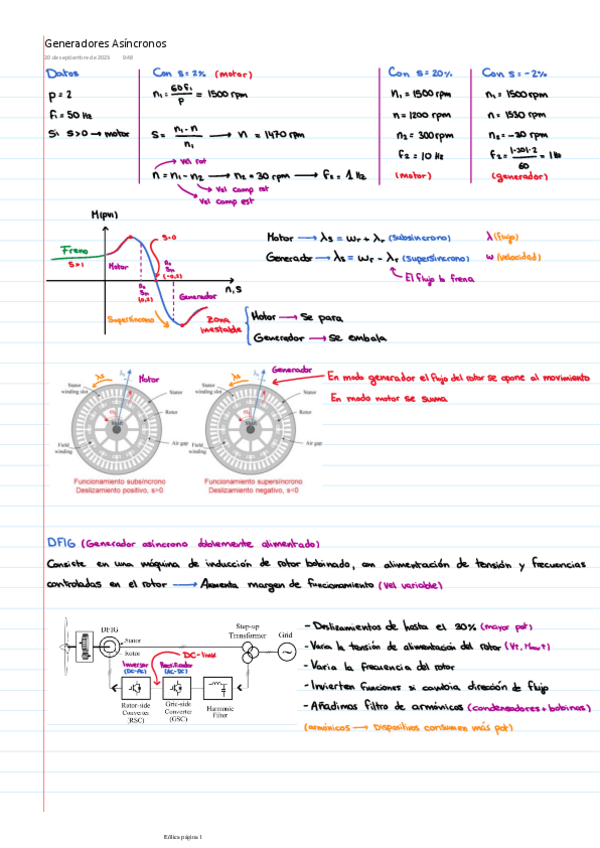 Generadores Asíncronos
20 de septiembre de 2023 9:48
Datos
p = 2
f₁ = 50 Hz
Si s>0 → motor
Con s = 2% (motor)
n₁ = 60f₁/p = 1500 rpm
s = (n₁-n)/n₁ → n = 1470 rpm
Vel rot
n = n₁ - n₂ → n₂ = 30 rpm → f₂ = 1 Hz
Vel camp rot
Vel camp est
Con s = 20%
n₁ = 1500 rpm
n = 1200 rpm
n₂ = 300 rpm
f₂ = 10 Hz
(motor)
Con s = -2%
n₁ = 1500 rpm
n = 1530 rpm
n₂ = -30 rpm
f₂ = |-30|·2/60 = 1 Hz
(generador)
M(par)
Freno
s>1
Motor
s=0
Generador
n, s
Supersíncrono
Zona inestable
Motor → Se para
Generador → Se embala
Motor → λs = ωr + λr (subsíncrono)
Generador → λs = ωr - λr (supersíncrono)
El flujo lo frena
λ (flujo)
ω (velocidad)
Motor
Stator winding slot
Stator
Rotor
Air gap
Field winding
Shaft
Funcionamiento subsíncrono
Deslizamiento positivo, s>0
Generador
Stator winding slot
Stator
Rotor
Air gap
Field winding
Shaft
Funcionamiento supersíncrono
Deslizamiento negativo, s<0
En modo generador el flujo del rotor se opone al movimiento
En modo motor se suma
DFIG (Generador asíncrono doblemente alimentado)
Consiste en una máquina de inducción de rotor bobinado, con alimentación de tensión y frecuencias
controladas en el rotor → Aumenta margen de funcionamiento (vel variable)
DFIG
Stator
Rotor
Step-up Transformer
Grid
DC-link
Inversor (DC-AC)
Rectificador (AC-DC)
Rotor-side Converter (RSC)
Grid-side Converter (GSC)
Harmonic Filter
- Deslizamientos de hasta el 30% (mayor pot)
- Varia la tensión de alimentación del rotor
- Varia la frecuencia del rotor
- Invierten funciones si cambia dirección de flujo
- Añadimos filtro de armónicos (condensadores + bobinas)
(armónicos → Dispositivos consumen más pot)
Eólica página 1